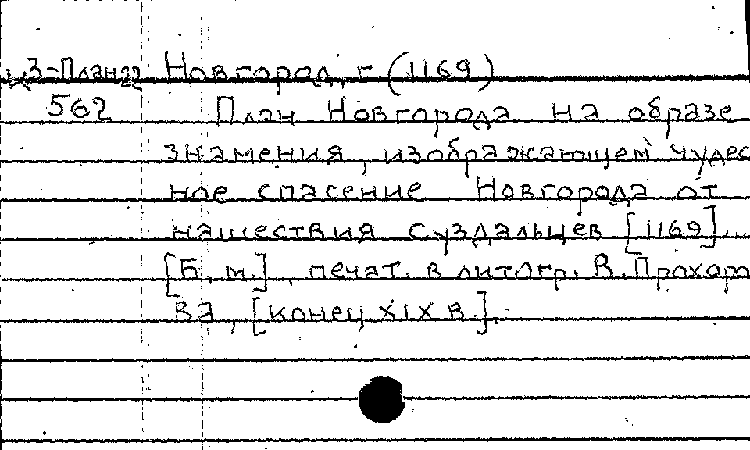 З-План22 Новгород, г (1169)
562 План Новгорода на образе
знамения, изображающем чудес
ное спасение Новгорода от
нашествия суздальцев [1169].
[Б. м.], печат. в литогр. В. Прохоро
ва, [конец XIX в.].